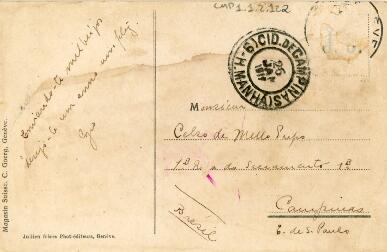 CMP 1.1.2.122
6) CID. DE CAMPINAS (S
MANHÃ
26
Enviando-te mil beijos
desejo-te um anno um feliz.
Monsieur
Celso de Mello Pupo
1ª Rua do Sacramento 18
Campinas
E. de S. Paulo
Brésil
Magasin Suisse, C. Guerg, Genève.
Jullien frères Phot-éditeurs, Genève.